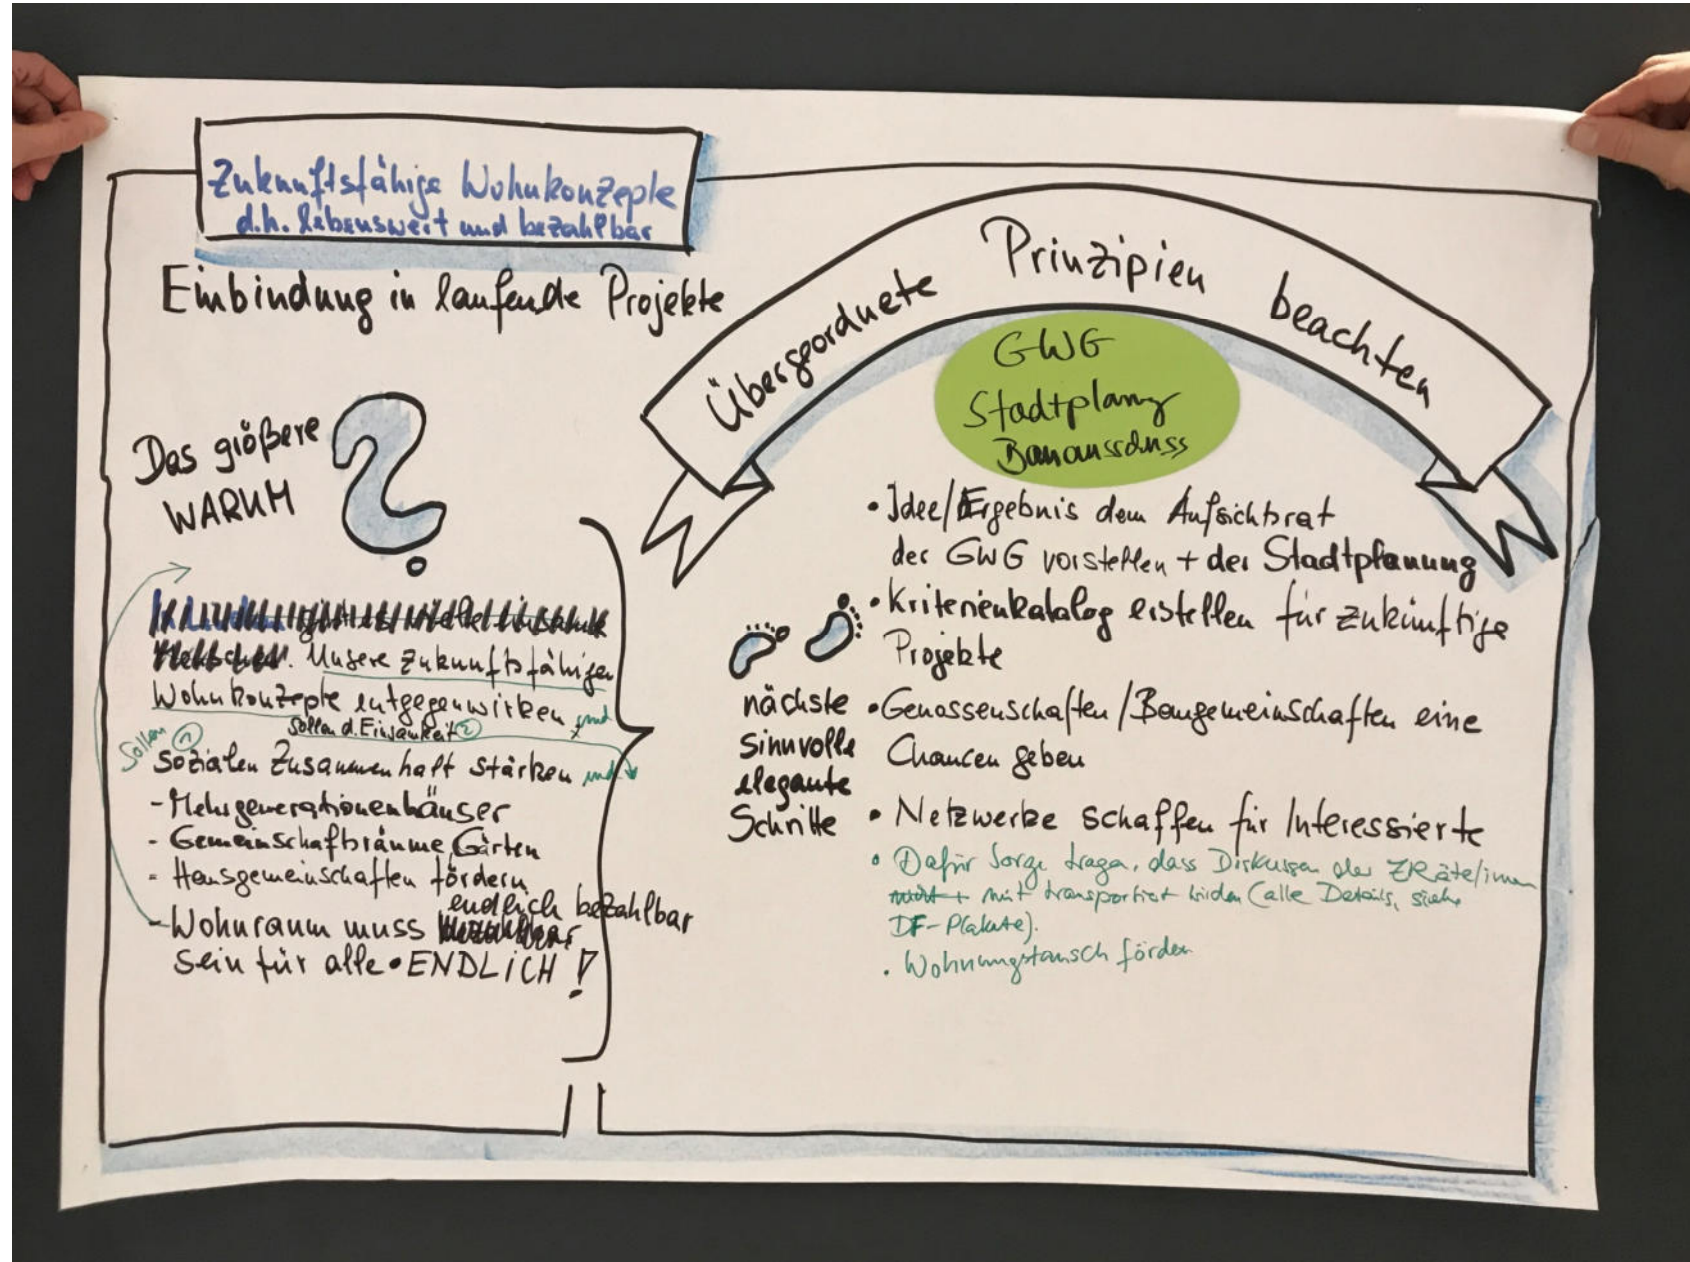 Zukunftsfähige Wohnkonzepte
d.h. lebenswert und bezahlbar
Einbindung in laufende Projekte
Das größere
WARUM
?
Menschen. Unsere zukunftsfähigen
Wohnkonzepte entgegenwirken und
sollen d. Einsamkeit ②
Sollen ①
sozialen Zusammenhalt stärken und
- Mehrgenerationenhäuser
- Gemeinschaftsräume, Gärten
- Hausgemeinschaften fördern
endlich bezahlbar
- Wohnraum muss bezahlbar
sein für alle • ENDLICH!
Übergeordnete Prinzipien beachten
GWG
Stadtplang
Bauausschuss
• Idee/Ergebnis dem Aufsichtsrat
der GWG vorstellen + der Stadtplanung
• Kriterienkatalog erstellen für zukünftige
Projekte
• Genossenschaften/Baugemeinschaften eine
Chancen geben
• Netzwerke schaffen für Interessierte
• Dafür Sorge tragen, dass Diskussion der ZRäte/innen
mit transportiert wird (alle Details, siehe
DF-Plakate).
• Wohnungstausch fördern
nächste
sinnvolle
elegante
Schritte